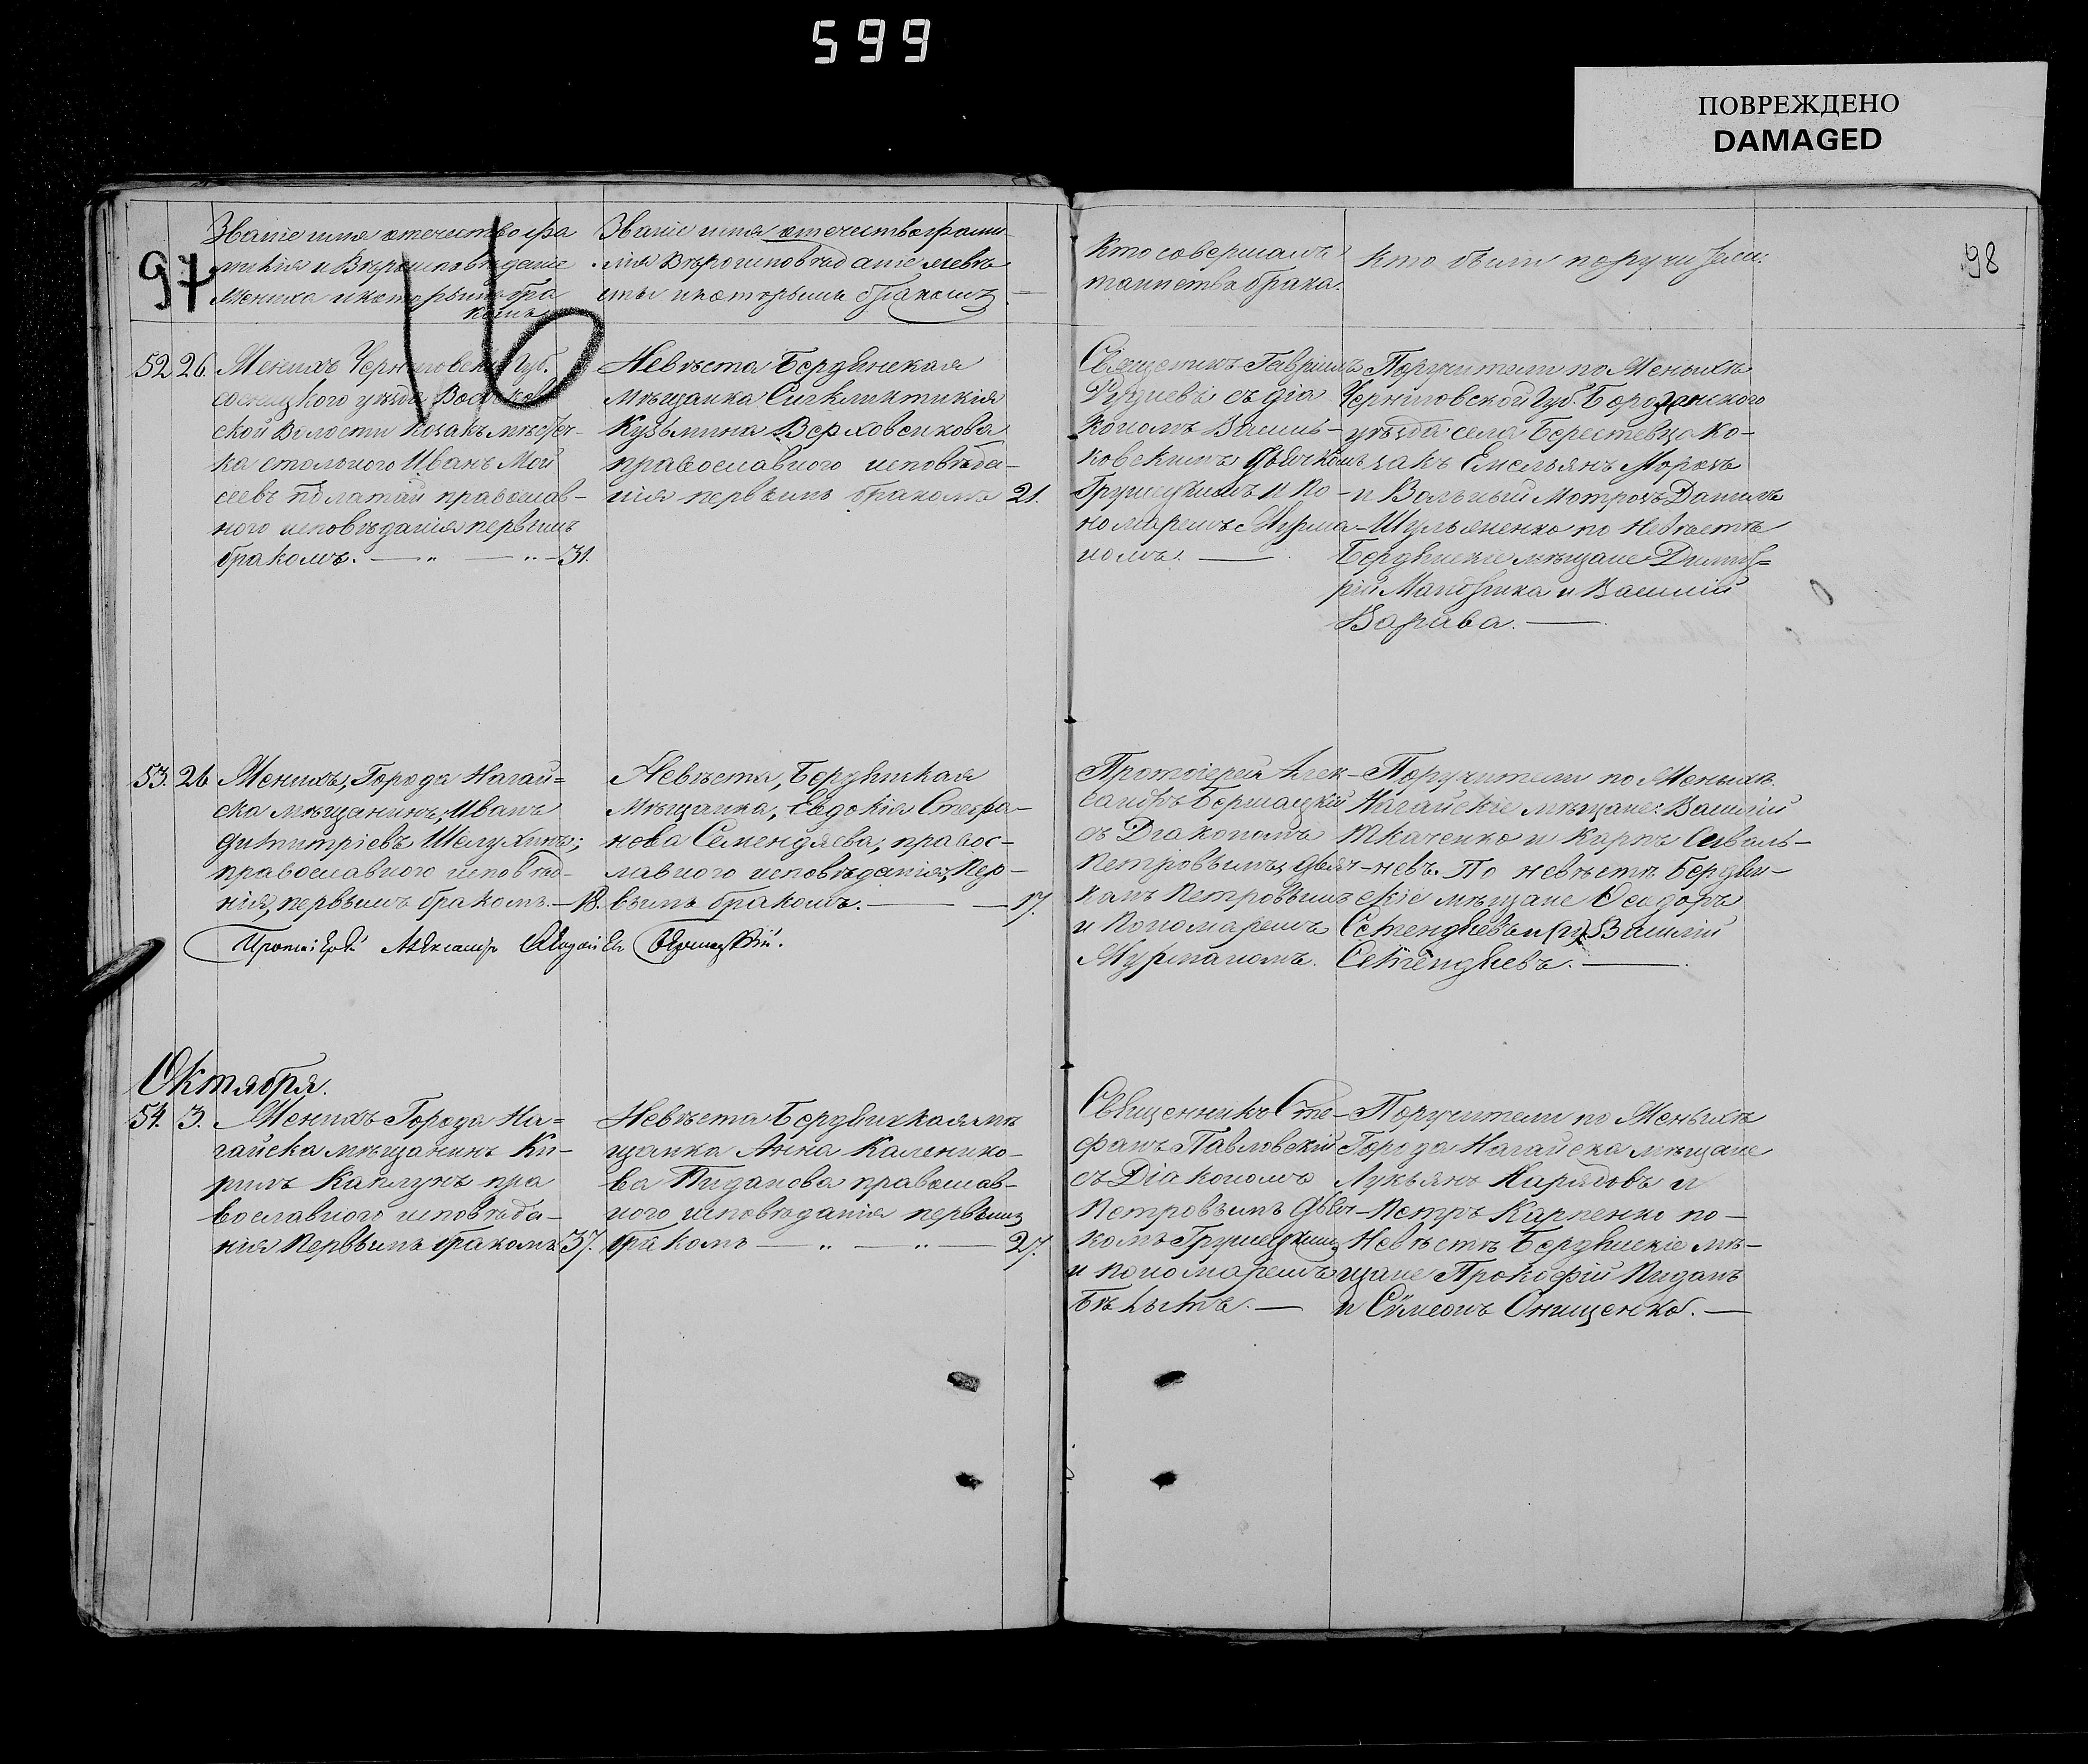 599
ПОВРЕЖДЕНО
DAMAGED
97
16
98
Званіе имя отечество фа
милія и Вѣроисповѣданіе
Жениха и которымъ бра
комъ
Званіе имя отечество фами
лія Вѣроисповѣданіе невѣ
сты и которымъ бракомъ
Кто совершалъ
таинство брака.
Кто были поручители:
52 26. Женихъ Черниговской Губ.
сосницкого уѣзда
ской Волости Козакъ мѣстеч-
ка стольного Иванъ Мой
сеевъ Полатай православ-
ного исповѣданія первымъ
бракомъ. — „ — „ — 31.
Невѣста Бердянская
мѣщанка Сигклитикія
Кузьмина Верховенкова
православного исповѣда-
нія первымъ бракомъ 21.
Священникъ Гавріилъ
съ діа
кономъ Василь-
ковскимъ дьячкомъ
Грушецкимъ и По-
номаремъ Мурма-
номъ. —
Поручители по Женихѣ
Черниговской Губ. Борознского
уѣзда села Берестевца Ко-
закъ Емельянъ Морозъ
и Вольный Матрозъ Данилъ
Шульженко по Невѣстѣ
Бердянскіе мѣщане Димит=
рій Мандрика и Василій
Варава. —
53. 26 Женихъ, Города Нагай=
ска мѣщанинъ, Иванъ
Димитріевъ Шелухинъ;
православного исповѣда-
нія, первымъ бракомъ. — 18.
Невѣста, Бердянская
Мѣщанка, Евдокія Стефа-
нова Семендяева; правос-
лавного исповѣданія, Пер-
вымъ бракомъ. — 17.
Протоіерей Александръ
Протоіерей Алек-
сандръ Бершацкій
съ Діакономъ
Петровымъ, дьяч-
комъ Петровымъ
и Пономаремъ
Мурманомъ.
Поручители по Женихѣ
Нагайскіе мѣщане: Василій
Ткаченко и Карпъ Сиволь-
невъ. По невѣстѣ Бердян-
скіе мѣщане Ѳеодоръ
Семендяевъ и Василій
Семендяевъ. —
Октября.
54. 3. Женихъ Города На=
гайска мѣщанинъ Ки-
рилъ Каплунъ пра
вославного исповѣда-
нія Первымъ бракомъ 37.
Невѣста Бердянская мѣ
щанка Анна Каленико-
ва Пиданова православ-
ного исповѣданія первымъ
бракомъ — „ — „ — 27.
Священникъ Сте-
фанъ Павловскій
съ Діакономъ
Петровымъ дьяч-
комъ Грушецкимъ
и пономаремъ
Поручители по Женихѣ
Города Нагайска мѣщане
Лукьянъ Нарядовъ и
Петръ Карпенко по-
Невѣстѣ Бердянскіе мѣ-
щане Прокофій Пиданъ
и Симеонъ Онищенко. —